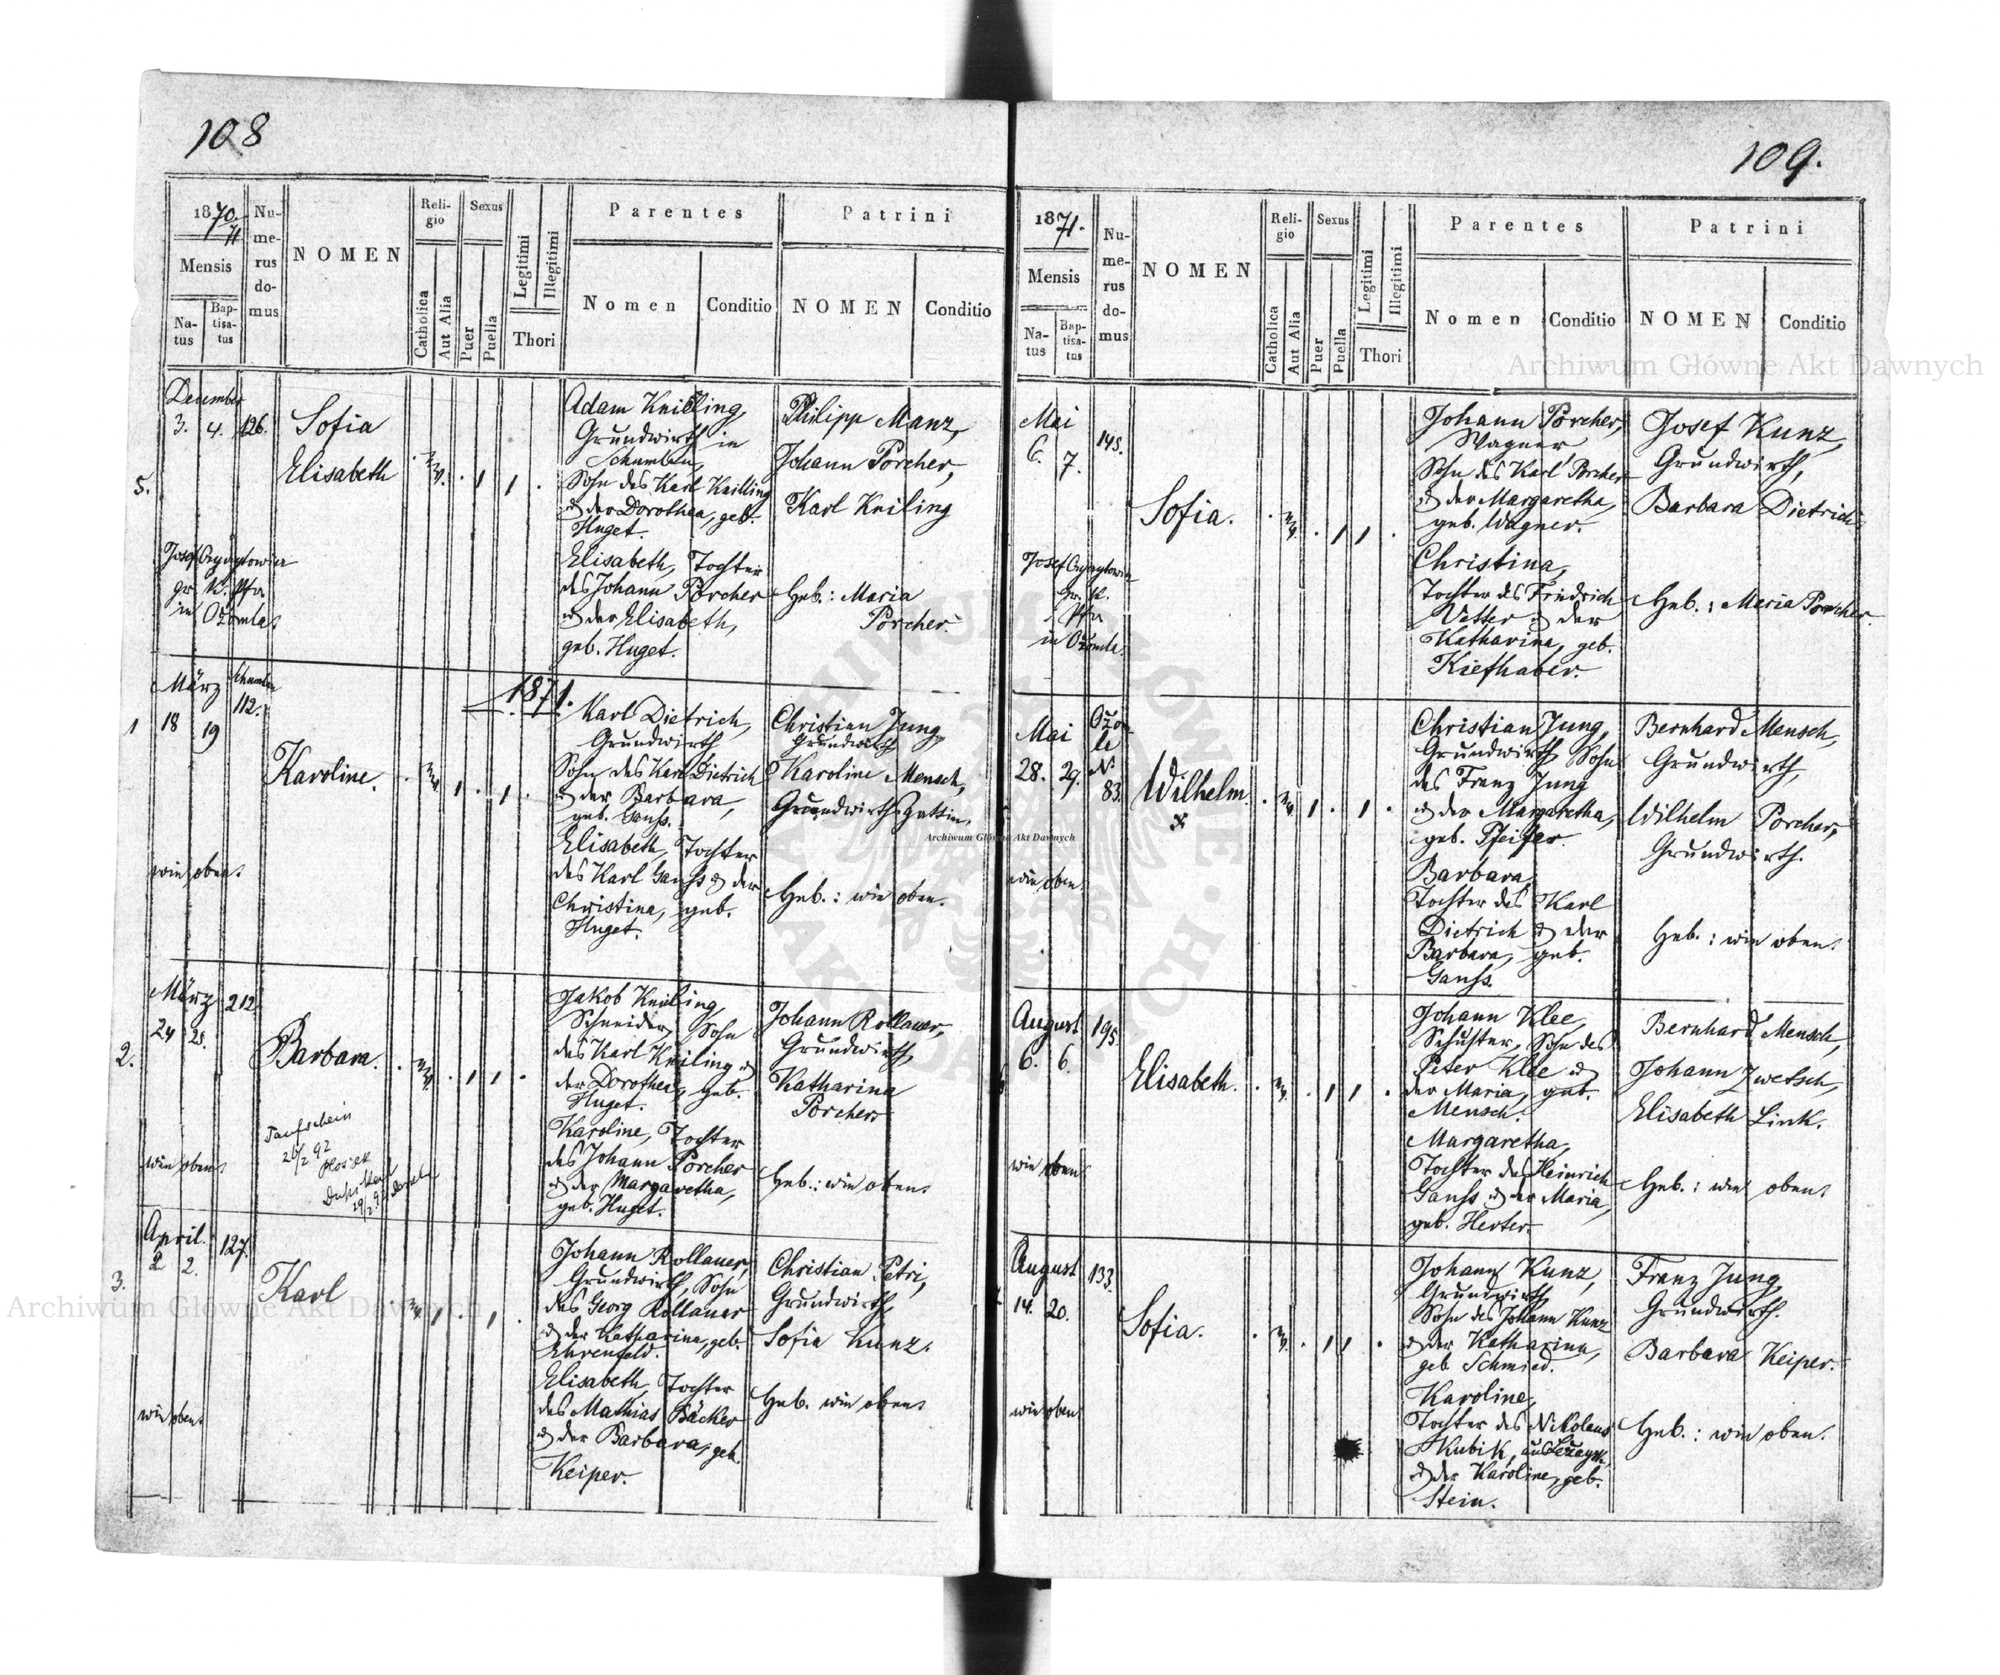 108
1870.
71
Mensis
Na-
tus
Bap-
tisa-
tus
Nu-
me-
rus
do-
mus
NOMEN
Reli-
gio
Catholica
Aut Alia
Sexus
Puer
Puella
Legitimi
Illegitimi
Thori
Parentes
Nomen
Conditio
Patrini
NOMEN
Conditio
5.
December
3. 4. 126.
Josef
gr. k. Pfr
in Ozomla.
Sofia
Elisabeth
Adam Kneiling,
Grundwirth in
Schumlau,
Sohn des Karl Kneiling
& der Dorothea, geb.
Huget.
Elisabeth, Tochter
des Johann Porcher
& der Elisabeth,
geb. Huget.
Philipp Manz,
Johann Porcher,
Karl Kneiling
Heb.: Maria
Porcher.
1871.
1
März
18 19
112.
wie oben.
Karoline.
Karl Dietrich,
Grundwirth
Sohn des Karl Dietrich
& der Barbara,
geb. Ganss.
Elisabeth, Tochter
des Karl Ganss & der
Christina, geb.
Huget.
Christian Jung,
Grundwirth
Karoline Mensch,
Grundwirths Gattin.
Heb.: wie oben.
2.
März 212.
24 25.
wie oben.
Barbara.
Taufschein
26/2 92
Jakob Kneiling,
Schneider, Sohn
des Karl Kneiling &
der Dorothea, geb.
Huget.
Karoline, Tochter
des Johann Porcher
& der Margaretha,
geb. Huget.
Johann Rollauer,
Grundwirth
Katharina
Porcher
Heb.: wie oben.
3.
April. 127.
2. 2.
wie oben.
Karl
Johann Rollauer,
Grundwirth, Sohn
des Georg Rollauer
& der Katharina, geb.
Ehrenfeld.
Elisabeth, Tochter
des Mathias Bäcker
& der Barbara, geb.
Keiper.
Christian Petri,
Grundwirth,
Sofia Kunz.
Heb. wie oben.
109.
1871.
Mensis
Na-
tus
Bap-
tisa-
tus
Nu-
me-
rus
do-
mus
NOMEN
Reli-
gio
Catholica
Aut Alia
Sexus
Puer
Puella
Legitimi
Illegitimi
Thori
Parentes
Nomen
Conditio
Patrini
NOMEN
Conditio
Mai
6. 7. 145.
Josef
gr. k.
Pfr
in Ozomla.
Sofia.
Johann Porcher,
Wagner,
Sohn des Karl Porcher
& der Margaretha,
geb. Wagner.
Christina,
Tochter des Friedrich
Vetter & der
Katharina, geb.
Kiefhaber.
Josef Kunz,
Grundwirth,
Barbara Dietrich
Heb.: Maria Porcher.
Mai
28. 29.
Ozom-
la
N.
83.
wie oben.
Wilhelm.
Christian Jung,
Grundwirth, Sohn
des Franz Jung
& der Margaretha,
geb. Pfeifer.
Barbara,
Tochter des Karl
Dietrich & der
Barbara, geb.
Ganss.
Bernhard Mensch,
Grundwirth,
Wilhelm Porcher,
Grundwirth.
Heb.: wie oben.
August 195.
6. 6.
wie oben
Elisabeth.
Johann Klee,
Schuster, Sohn des
Peter Klee &
der Maria, geb.
Mensch.
Margaretha,
Tochter des Heinrich
Ganss & der Maria,
geb. Herter.
Bernhard Mensch,
Johann Zwetsch,
Elisabeth Link.
Heb.: wie oben.
August 133.
14. 20.
wie oben
Sofia.
Johann Kunz,
Grundwirth
Sohn des Johann Kunz
& der Katharina,
geb. Schmied.
Karoline,
Tochter des Nikolaus
Kubik, aus
& der Karoline, geb.
Stein.
Franz Jung,
Grundwirth.
Barbara Keiper.
Heb.: wie oben.
Archiwum Główne Akt Dawnych
Archiwum Główne Akt Dawnych
Archiwum Główne Akt Dawnych